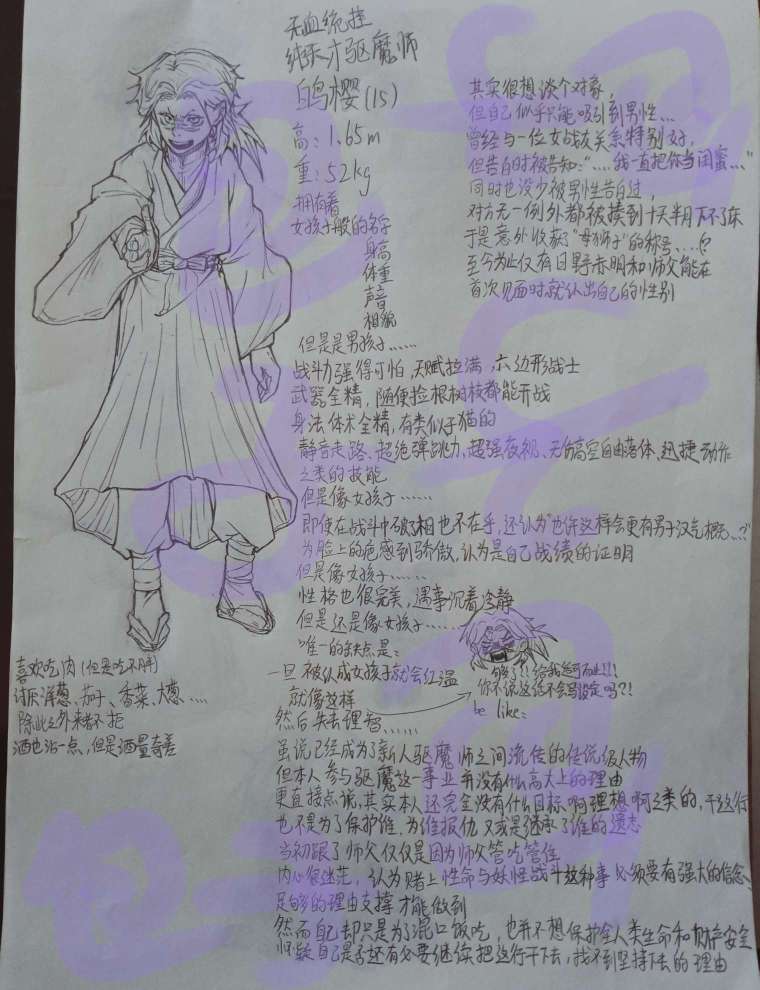 无血统挂
纯天才驱魔师
白鸟樱(15)
高：1.65m
重：52kg
拥有着
女孩子般的名字
身高
体重
声音
相貌
但是是男孩子……
其实很想谈个对象，
但自己似乎只能吸引到男性…
曾经与一位女战友关系特别好，
但告白时被告知："……我一直把你当闺蜜…"
同时也没少被男性告白过，
对方无一例外都被揍到十天半月下不了床
于是意外收获了"母狮子"的称号……(?
至今为止仅有日野赤明和师父能在
首次见面时就认出自己的性别
战斗力强得可怕，天赋拉满，六边形战士
武器全精，随便捡根树杈都能开战
身法体术全精，有类似于猫的
静音走路、超绝弹跳力、超强夜视、无伤高空自由落体、迅捷动作
之类的技能
但是像女孩子……
即使在战斗中破相也不在乎，还认为"也许这样会更有男子汉气概…?"
为脸上的疤感到骄傲，认为是自己战绩的证明
但是像女孩子……
性格也很完美，遇事沉着冷静
但是还是像女孩子……
唯一的缺点是：
一旦被认成女孩子就会红温
就像这样
然后失去理智……
够了!!给我适可而止!!!
你不说这些不会写设定吗?!
be like：
喜欢吃肉(但是吃不胖)
讨厌洋葱、茄子、香菜、大葱……
除此之外来者不拒
酒也沾一点，但是酒量奇差
虽说已经成为了新人驱魔师之间流传的传说级人物
但本人参与驱魔这一事业并没有什么高大上的理由
更直接点说，其实本人还完全没有什么目标啊理想啊之类的，干这行
也不是为了保护谁、为谁报仇又或是继承了谁的遗志
当初跟了师父仅仅是因为师父管吃管住
内心很迷茫，认为赌上性命与妖怪战斗这种事必须要有强大的信念、
足够的理由支撑才能做到
然而自己却只是为了混口饭吃，也并不想保护全人类生命和财产安全
怀疑自己是否还有必要继续把这行干下去，找不到坚持下去的理由